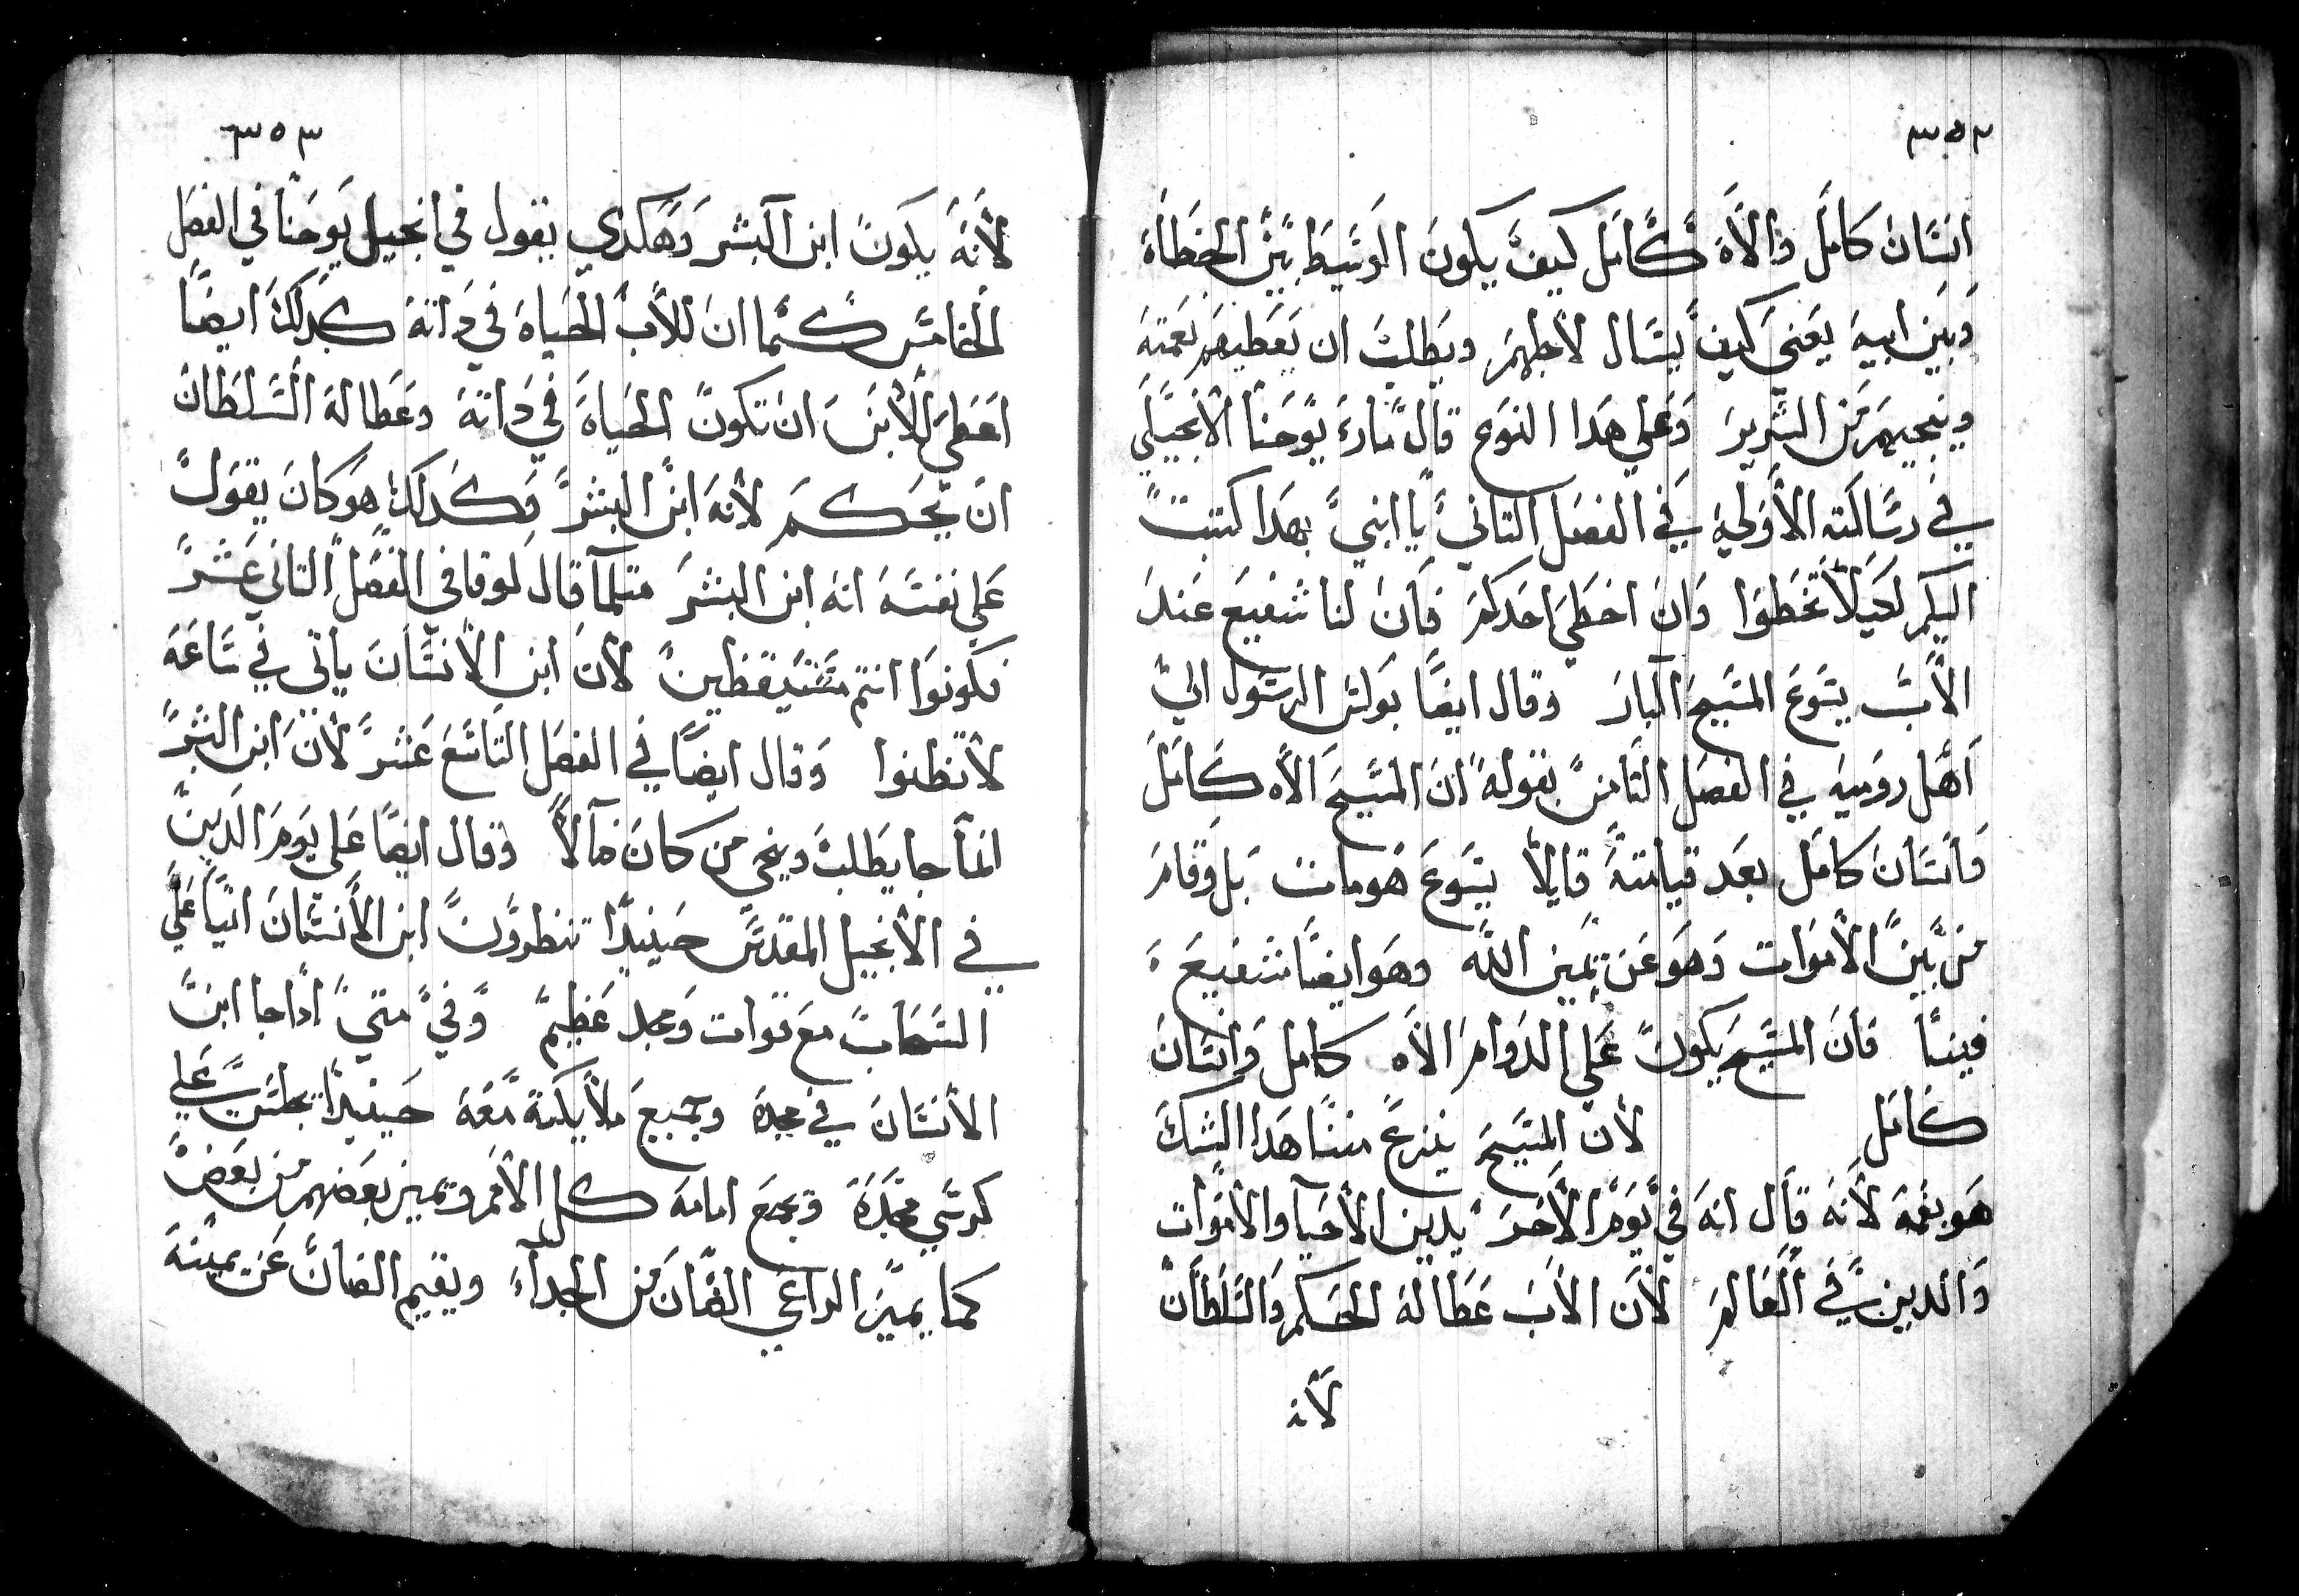 ٣٥٢
انسان كامل والاه كامل كيف يكون الوسيط بين الخطاة
وبين ابيه يعني كيف يسال لاجلهم ويطلب ان يعطيهم نعمته
وينجيهم من الشرير وعلي هدا النوع قال مارى يوحنا الانجيلي
في رسالته الاولية في الفصل التاني يا ابني بهدا كتبت
اليكم لكيلا تخطوا وان اخطي احدكم فان لنا شفيع عند
الاب يسوع المسيح البار وقال ايضا بولس الرسول الي
اهل روميه في الفصل التامن بقوله ان المسيح الاه كامل
وانسان كامل بعد قيامته قايلا يسوع هو مات بل وقام
من بين الاموات وهو عن يمين الله وهو ايضا شفيع
فينا فان المسيح يكون علي الدوام الاه كامل وانسان
كامل لان المسيح ينزع مننا هدا الشك
هو بفمه لانه قال انه في يوم الاخر يدين الاحيا والاموات
والدين في العالم لان الاب عطا له الحكم والسلطان
لانه
٣٥٣
لانه يكون ابن البشر وهكدي يقول في انجيل يوحنا في الفصل
الخامس كما ان للاب الحياة في داته كدلك ايضا
اعطي للابن ان تكون الحياة في داته وعطا له السلطان
ان يحكم لانه ابن البشر وكدلك هو كان يقول
علي نفسه انه ابن البشر متلما قال لوقا في الفصل التاني عشر
فكونوا انتم مستيقظين لان ابن الانسان ياتي في ساعة
لا تظنوا وقال ايضا في الفصل التاسع عشر لان ابن البشر
انما جا يطلب وينجي من كان ضالا وقال ايضا علي يوم الدين
في الانجيل المقدس حينيدا تنظرون ابن الانسان اتيا علي
السحاب مع قوات ومجد عظيم وفي متي ادا جا ابن
الانسان في مجده وجميع ملايكته معه حينيدا يجلس علي
كرسي مجده وتجمع امامه كل الامم وتميز بعضهم من بعض
كما يميز الراعي الضان من الجداء ويقيم الضان عن يمينه